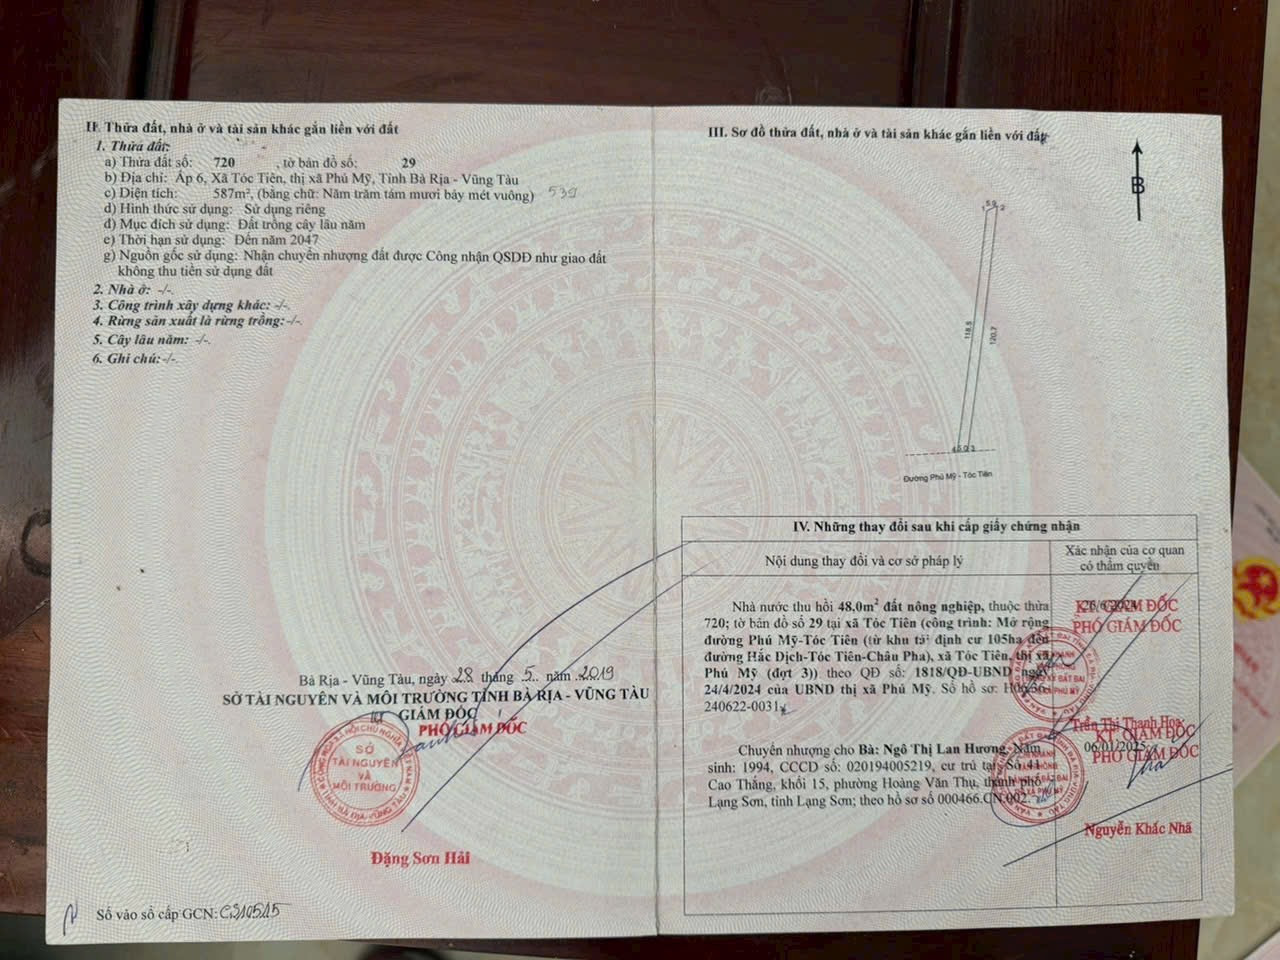 II. Thửa đất, nhà ở và tài sản khác gắn liền với đất
1. Thửa đất:
a) Thửa đất số: 720 , tờ bản đồ số: 29
b) Địa chỉ: Ấp 6, Xã Tóc Tiên, thị xã Phú Mỹ, Tỉnh Bà Rịa - Vũng Tàu
c) Diện tích: 587m², (bằng chữ: Năm trăm tám mươi bảy mét vuông) 539
d) Hình thức sử dụng: Sử dụng riêng
đ) Mục đích sử dụng: Đất trồng cây lâu năm
e) Thời hạn sử dụng: Đến năm 2047
g) Nguồn gốc sử dụng: Nhận chuyển nhượng đất được Công nhận QSDĐ như giao đất
không thu tiền sử dụng đất
2. Nhà ở: -/-.
3. Công trình xây dựng khác: -/-.
4. Rừng sản xuất là rừng trồng: -/-.
5. Cây lâu năm: -/-.
6. Ghi chú: -/-.
Bà Rịa - Vũng Tàu, ngày 28 tháng 5 năm 2019
SỞ TÀI NGUYÊN VÀ MÔI TRƯỜNG TỈNH BÀ RỊA - VŨNG TÀU
GIÁM ĐỐC
PHÓ GIÁM ĐỐC
SỞ
TÀI NGUYÊN
VÀ
MÔI TRƯỜNG
TỈNH BÀ RỊA-VŨNG TÀU
Đặng Sơn Hải
Số vào sổ cấp GCN:
III. Sơ đồ thửa đất, nhà ở và tài sản khác gắn liền với đất
B
118.5
120.7
Đường Phú Mỹ - Tóc Tiên
IV. Những thay đổi sau khi cấp giấy chứng nhận
Nội dung thay đổi và cơ sở pháp lý
Xác nhận của cơ quan
có thẩm quyền
Nhà nước thu hồi 48,0m² đất nông nghiệp, thuộc thửa
720; tờ bản đồ số 29 tại xã Tóc Tiên (công trình: Mở rộng
đường Phú Mỹ-Tóc Tiên (từ khu tái định cư 105ha đến
đường Hắc Dịch-Tóc Tiên-Châu Pha), xã Tóc Tiên, thị xã
Phú Mỹ (đợt 3)) theo QĐ số: 1818/QĐ-UBND ngày
24/4/2024 của UBND thị xã Phú Mỹ. Số hồ sơ:
240622-0031
KT. GIÁM ĐỐC
PHÓ GIÁM ĐỐC
Trần Thị Thanh Hoa
Chuyển nhượng cho Bà: Ngô Thị Lan Hương, Năm
sinh: 1994, CCCD số: 020194005219, cư trú tại: Số 41
Cao Thắng, khối 15, phường Hoàng Văn Thụ, thành phố
Lạng Sơn, tỉnh Lạng Sơn; theo hồ sơ số 000466.CN.002.
06/01/2025
KT. GIÁM ĐỐC
PHÓ GIÁM ĐỐC
Nguyễn Khắc Nhã